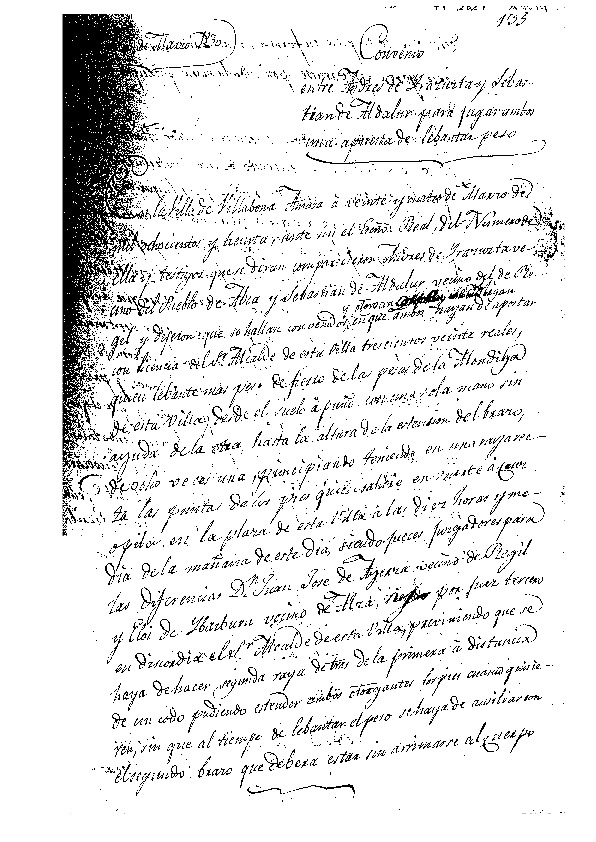 155
de Marzo
Convenio
entre Andres de Yrazusta y Sebas-
tian de Aldalur para jugar ambos
una apuesta de lebantar peso
la Villa de Villabona Amasa à veinte y de Marzo de
mil ochocientos y treinta, ante mi el Esno Real, del Numero de
ella y testigos que se diran comparecieron Andres de Yrazusta ve-
cino del Pueblo de Alza y Sebastian de Aldalur vecino del de Re-
gil y dijeron: que se hallan convenidos, en que ambos hayan de apostar
y
con licencia del Sr Alcalde de esta Villa trescientos veinte reales,
quien lebante mas peso de fierro de las pesas de la Alondiga
de esta Villa, desde el suelo à puño con una sola mano sin
ayuda de la otra, hasta la altura de la estension del brazo,
de ocho veces una, principiando teniendo en una raya rec-
ta las puntas de los pies quien saldrè en suerte a
en la plaza de esta Villa à las diez horas y me-
dia de la mañana de este dia, siendo jueces juzgadores para
las diferencias Dn Juan Jose de vecino de Regil
y Eloi de Ybarburu vecino de Alza, por juez tercero
en discordia el Sr Alcalde de esta Villa, previniendo que se
haya de hacer segunda raya detras de la primera à distancia
de un codo pudiendo estender ambos otorgantes los pies cuando quisie-
ren, sin que al tiempo de lebantar el peso se haya de auxiliar con
el segundo brazo que deberà estar sin arrimarse al cuerpo